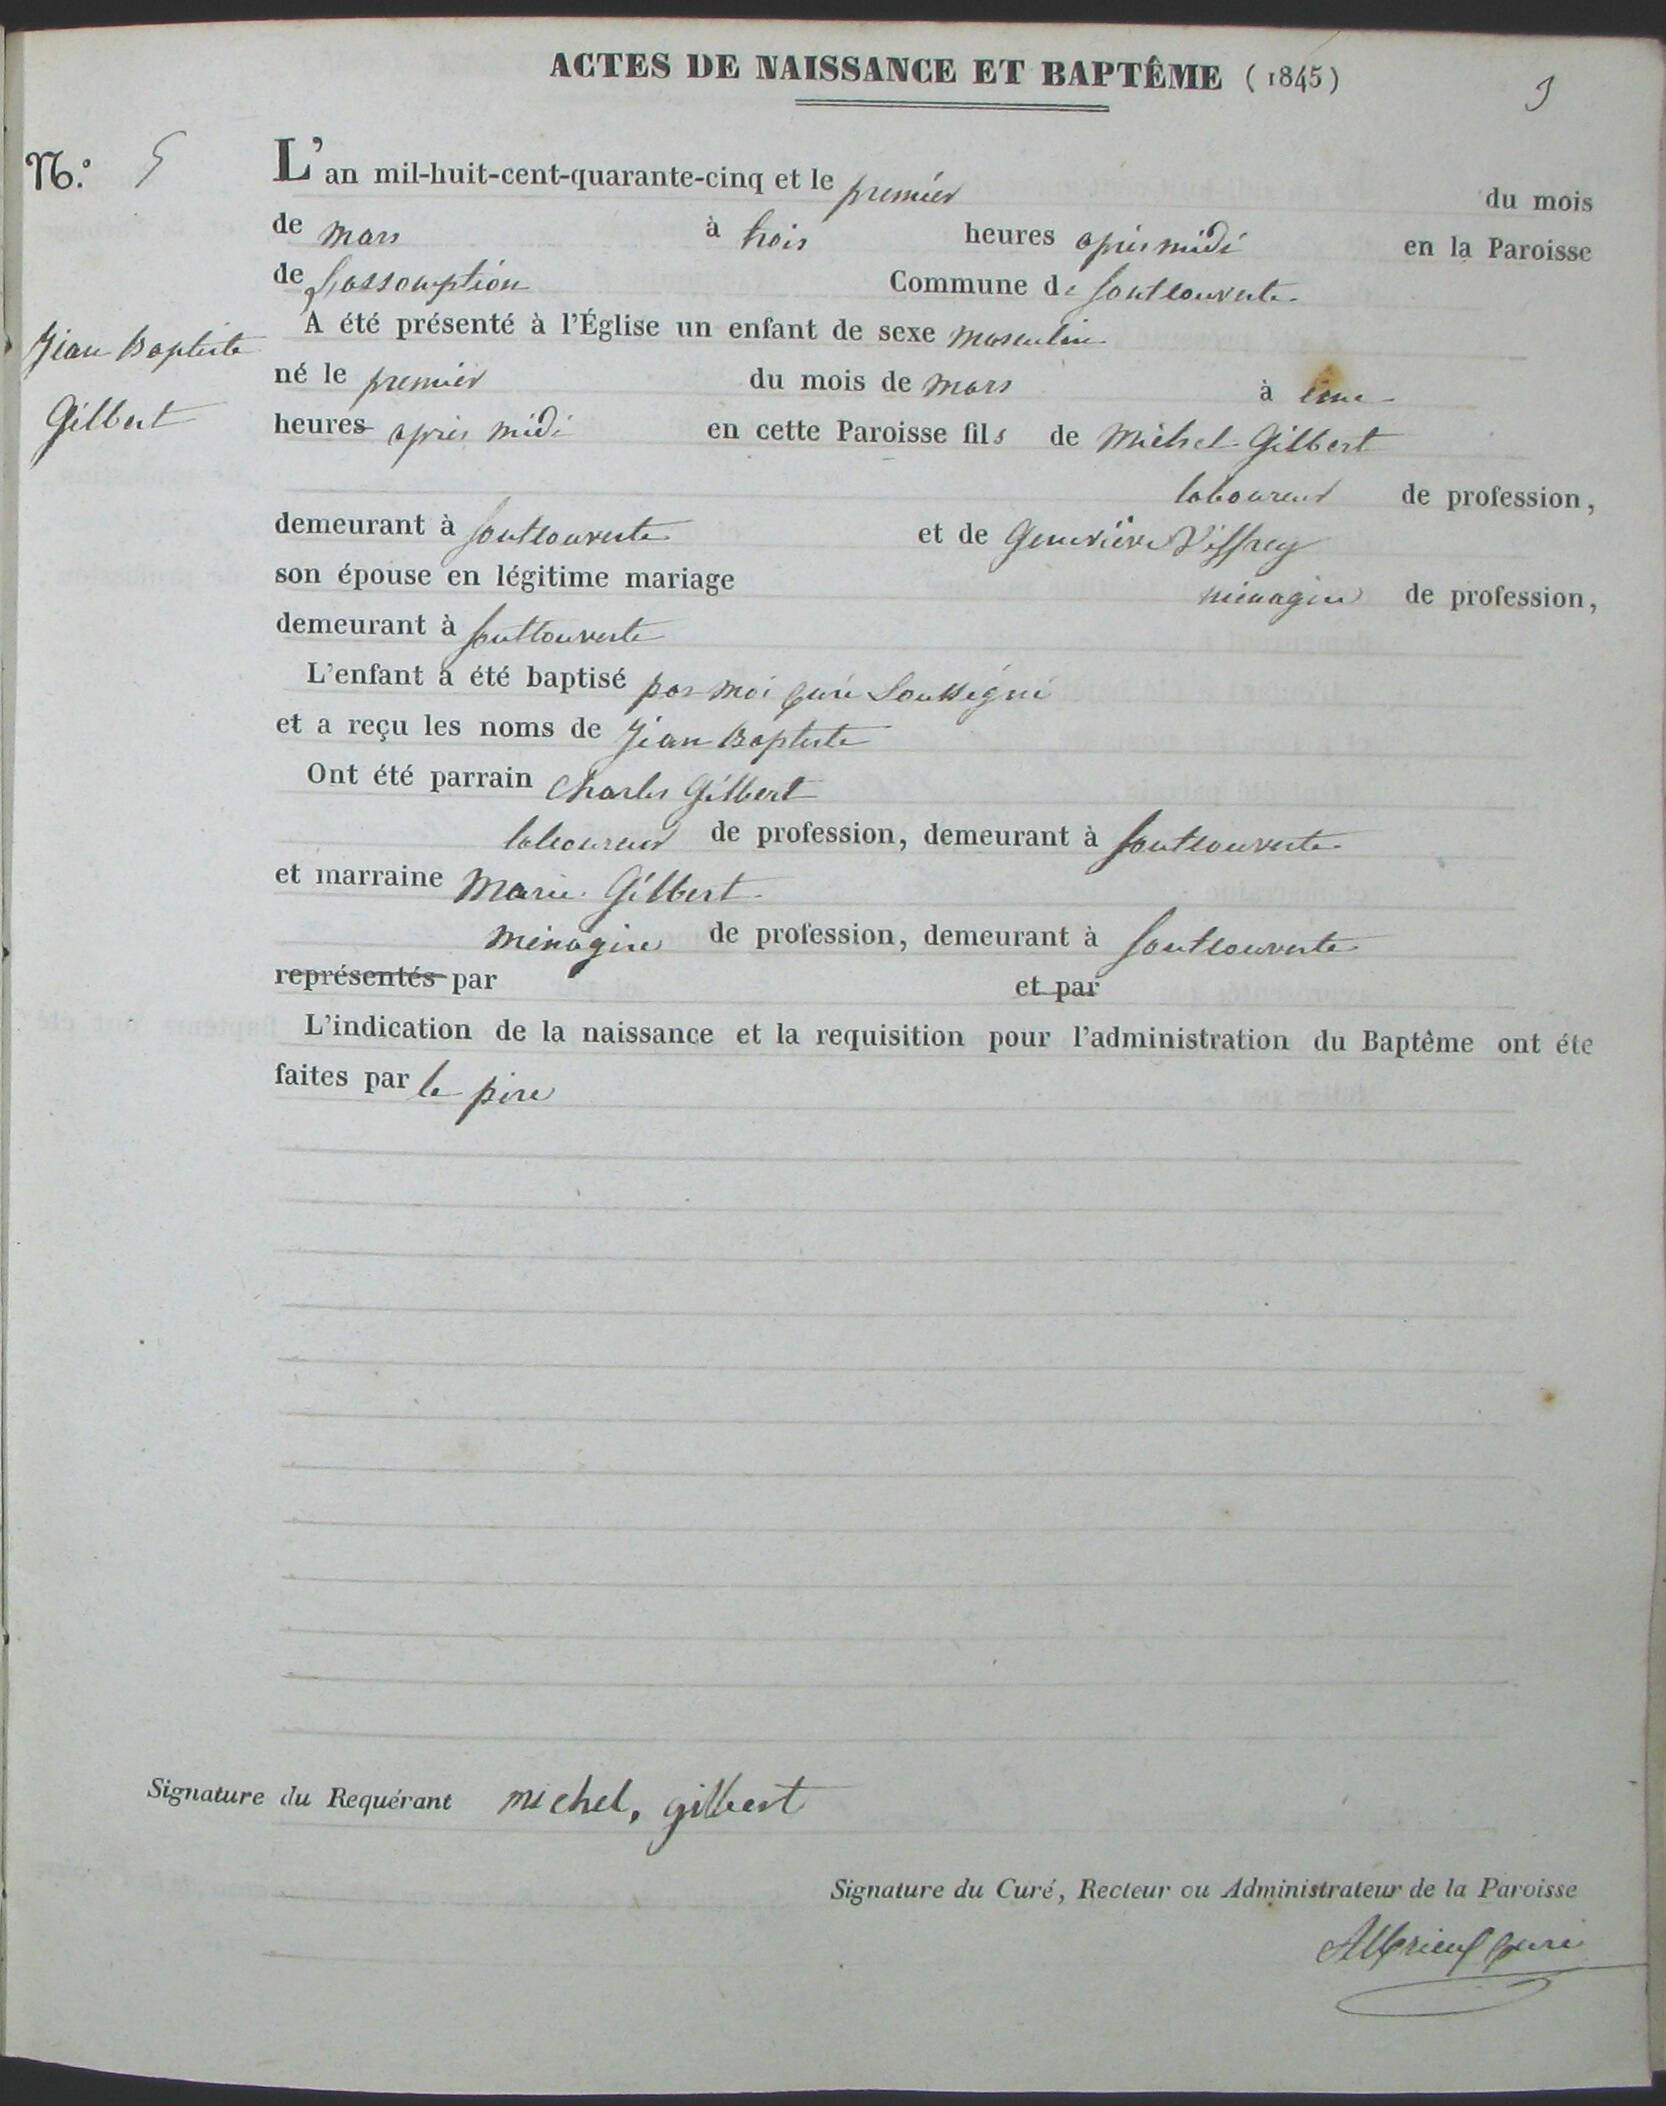 ACTES DE NAISSANCE ET BAPTÊME (1845)
N.º 5
L'an mil-huit-cent-quarante-cinq et le premier du mois
de mars à trois heures après midi en la Paroisse
de L'assomption Commune de fontcouverte
A été présenté à l'Église un enfant de sexe masculin
Jean Baptiste
Gilbert
né le premier du mois de mars à une
heures après midi en cette Paroisse fils de Michel Gilbert
laboureur de profession,
demeurant à fontcouverte et de Geneviève Viffrey
son épouse en légitime mariage ménagère de profession,
demeurant à fontcouverte
L'enfant a été baptisé par moi curé soussigné
et a reçu les noms de Jean Baptiste
Ont été parrain Charles Gilbert
laboureur de profession, demeurant à fontcouverte
et marraine Marie Gilbert
ménagère de profession, demeurant à fontcouverte
représentés par et par
L'indication de la naissance et la requisition pour l'administration du Baptême ont été
faites par le père
Signature du Requérant michel, gilbert
Signature du Curé, Recteur ou Administrateur de la Paroisse
curé